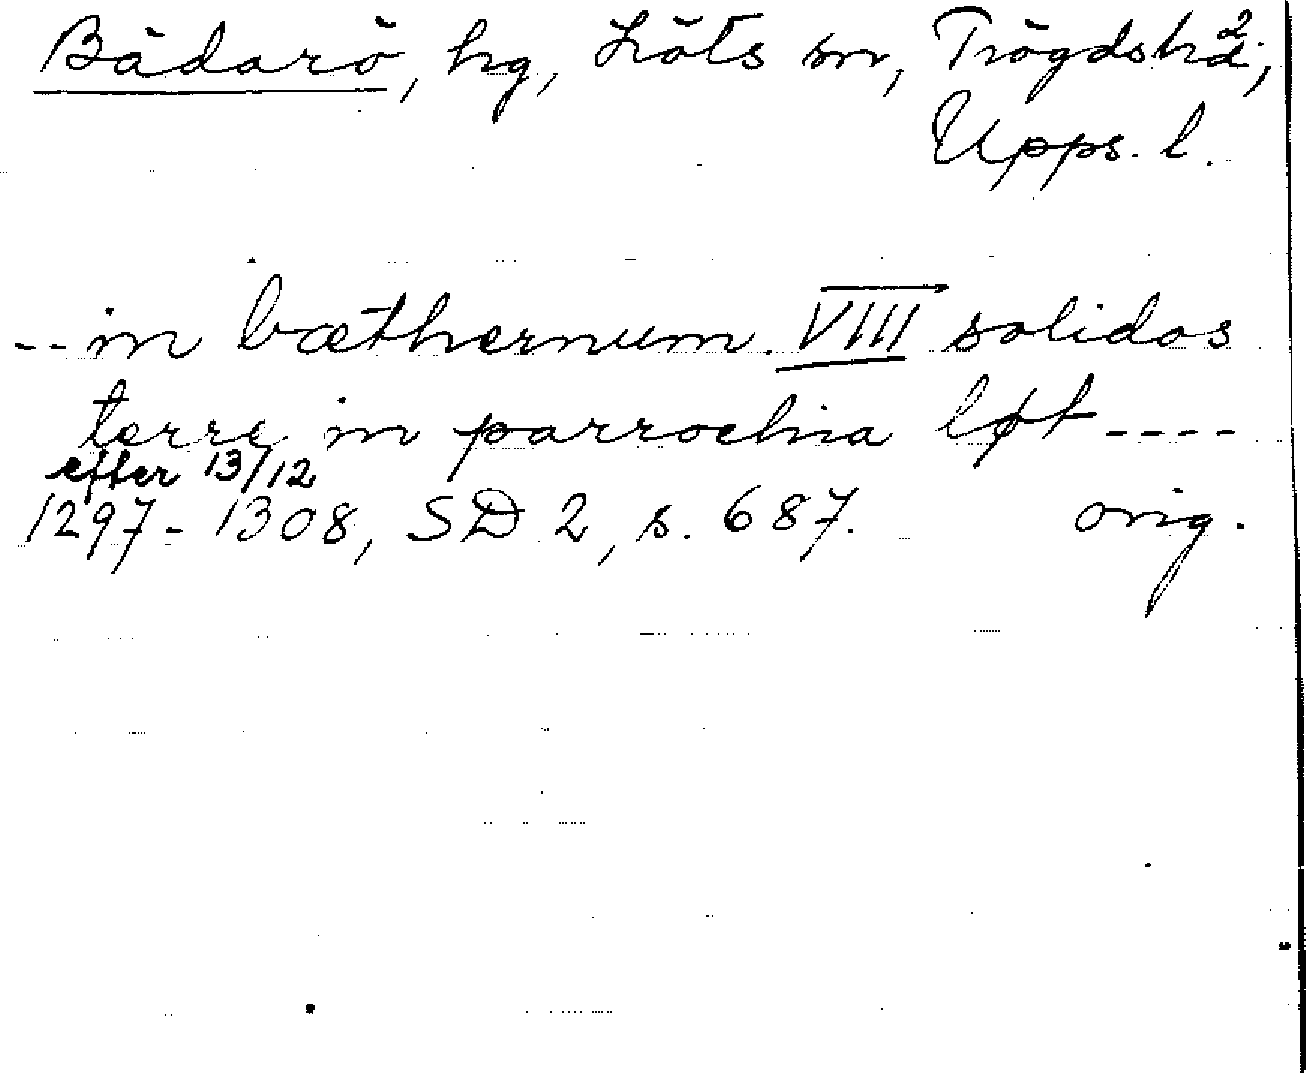 Bädarö, hg, Löts sn, Trögds hd;
Upps. l.
-- in bæthernum. VIII solidos
terre in parrochia løt ----
efter 13/12
1297-1308, SD 2, s. 687. orig.